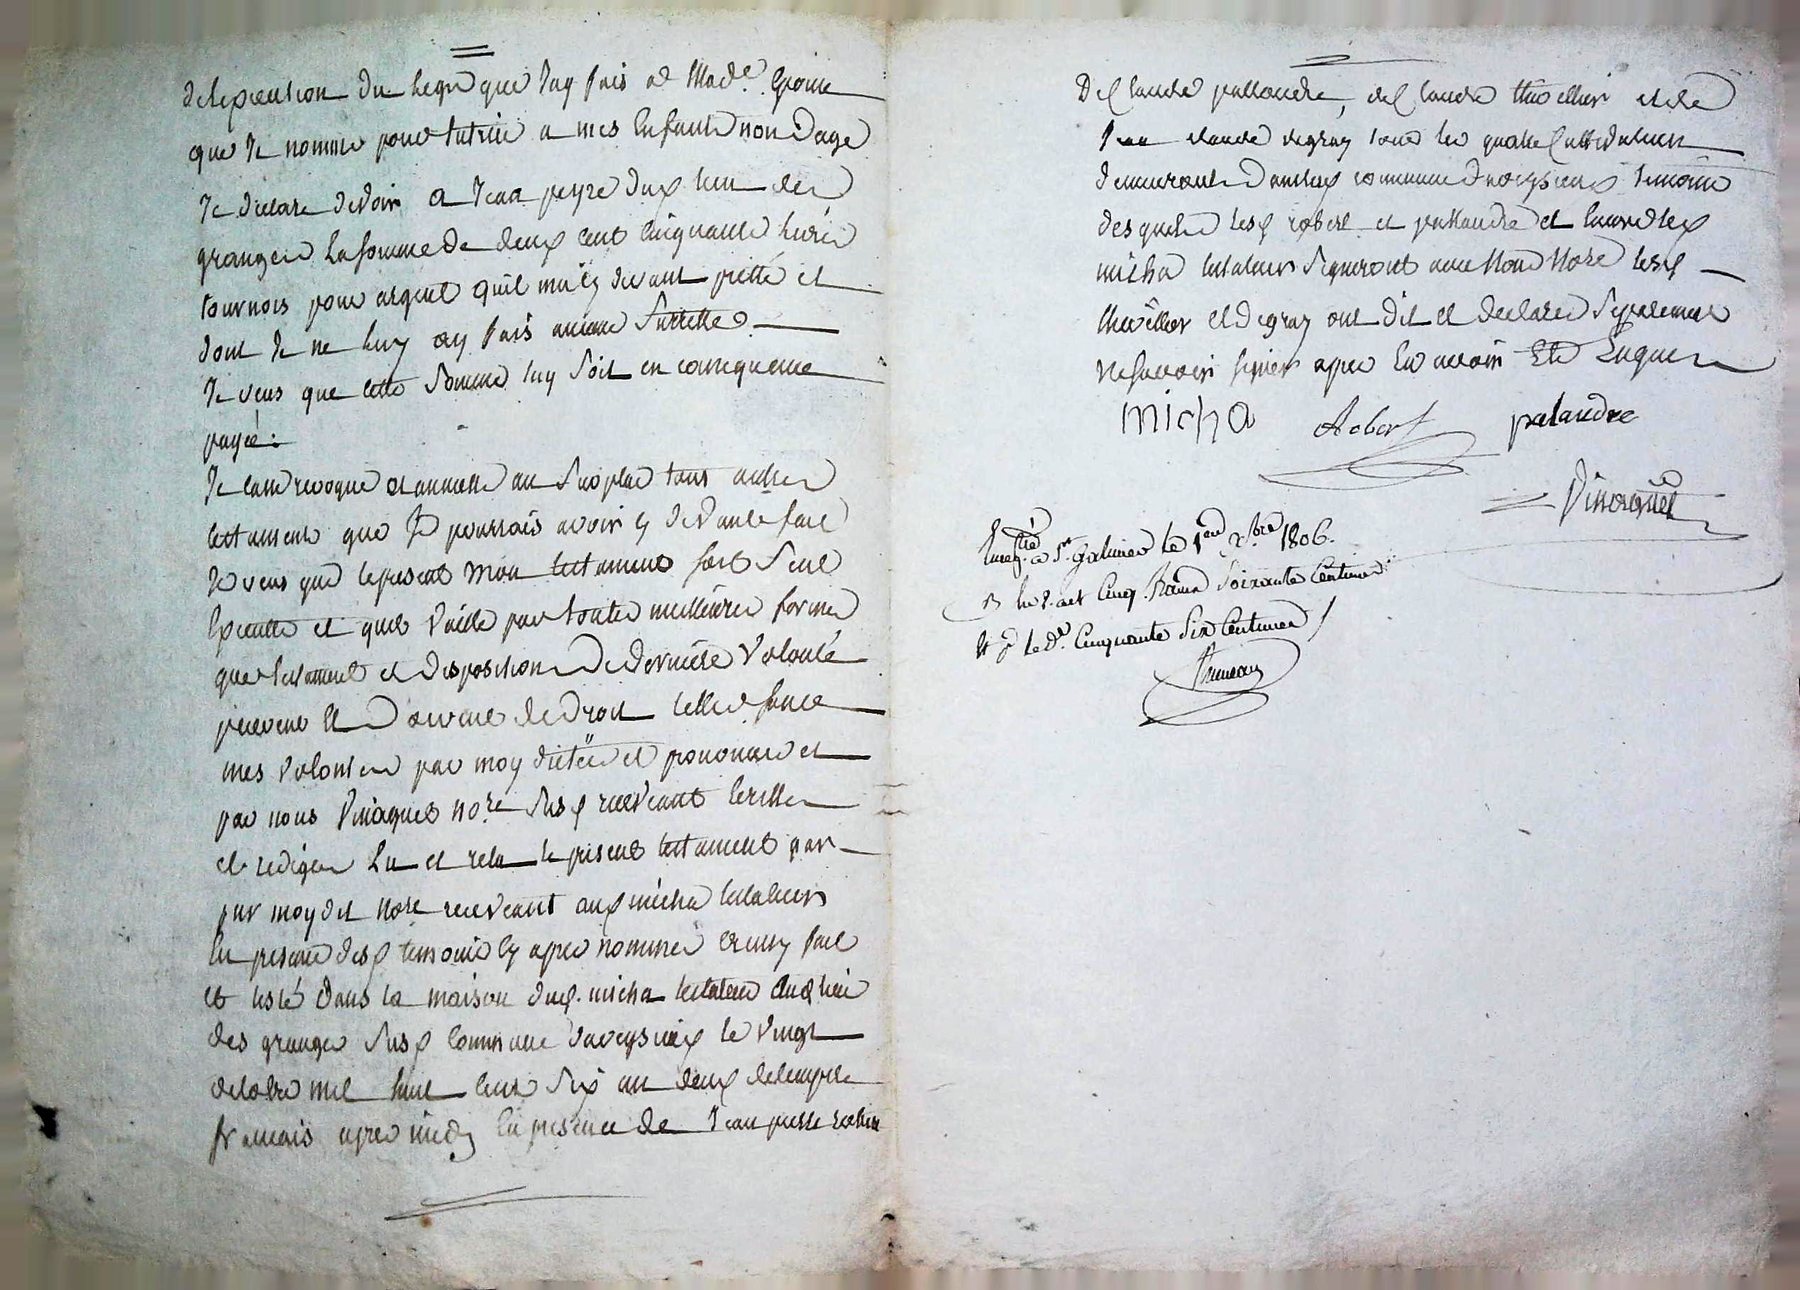 que je nomme pour tutrice a mes Enfants non dage
Je declare devoir a Jean peyre dud lieu des
granges la somme de deux cent cinquante livres
tournois pour argent quil ma cy devant pretté et
dont je ne luy ay fais aucune
Je veus que cette somme luy soit en consequence
payée.
Je casse revoque et annulle au surplus tous autres
testaments que je pourrois avoir cy devant fait
Je veus que le present mon testament soit seul
Executé et quil vaille par toutes meilleures formes
que testament et disposition de derniere volonté
peuvent et doivent de droit telles sonts
mes volontés par moy dictées et prononcées et
par nous Vinoquet nore. susd recevant Ecrittes
et redigées Lu et relu le present testament par
par moy dit Nore recevant aud micha testateur
En presence desd temoins cy apres nommés
et lesté dans la maison dud. micha testateur audlieu
des granges susd commune daveysieux le vingt
octobre mil huit cent six an deux de lempire
francais apres midy En presence de Jean pierre robert
De Claude pallandre, de Claude thivellier et de
Jean claude degray tous les quatre Cultivateurs
demeurants commune daveysieux temoins
desquels lesd robert et pallandre et
micha testateur signeront avec Nous Nore lesd
thivellier et degray ont dit et declarés separement
ne savoir signer apres En avoir Eté Enquis
micha Robert palandre
Vinoquet
Enregtré a St. galmier le 1er xbre 1806.
Cinq francs soixante Centimes
Cinquante six Centimes